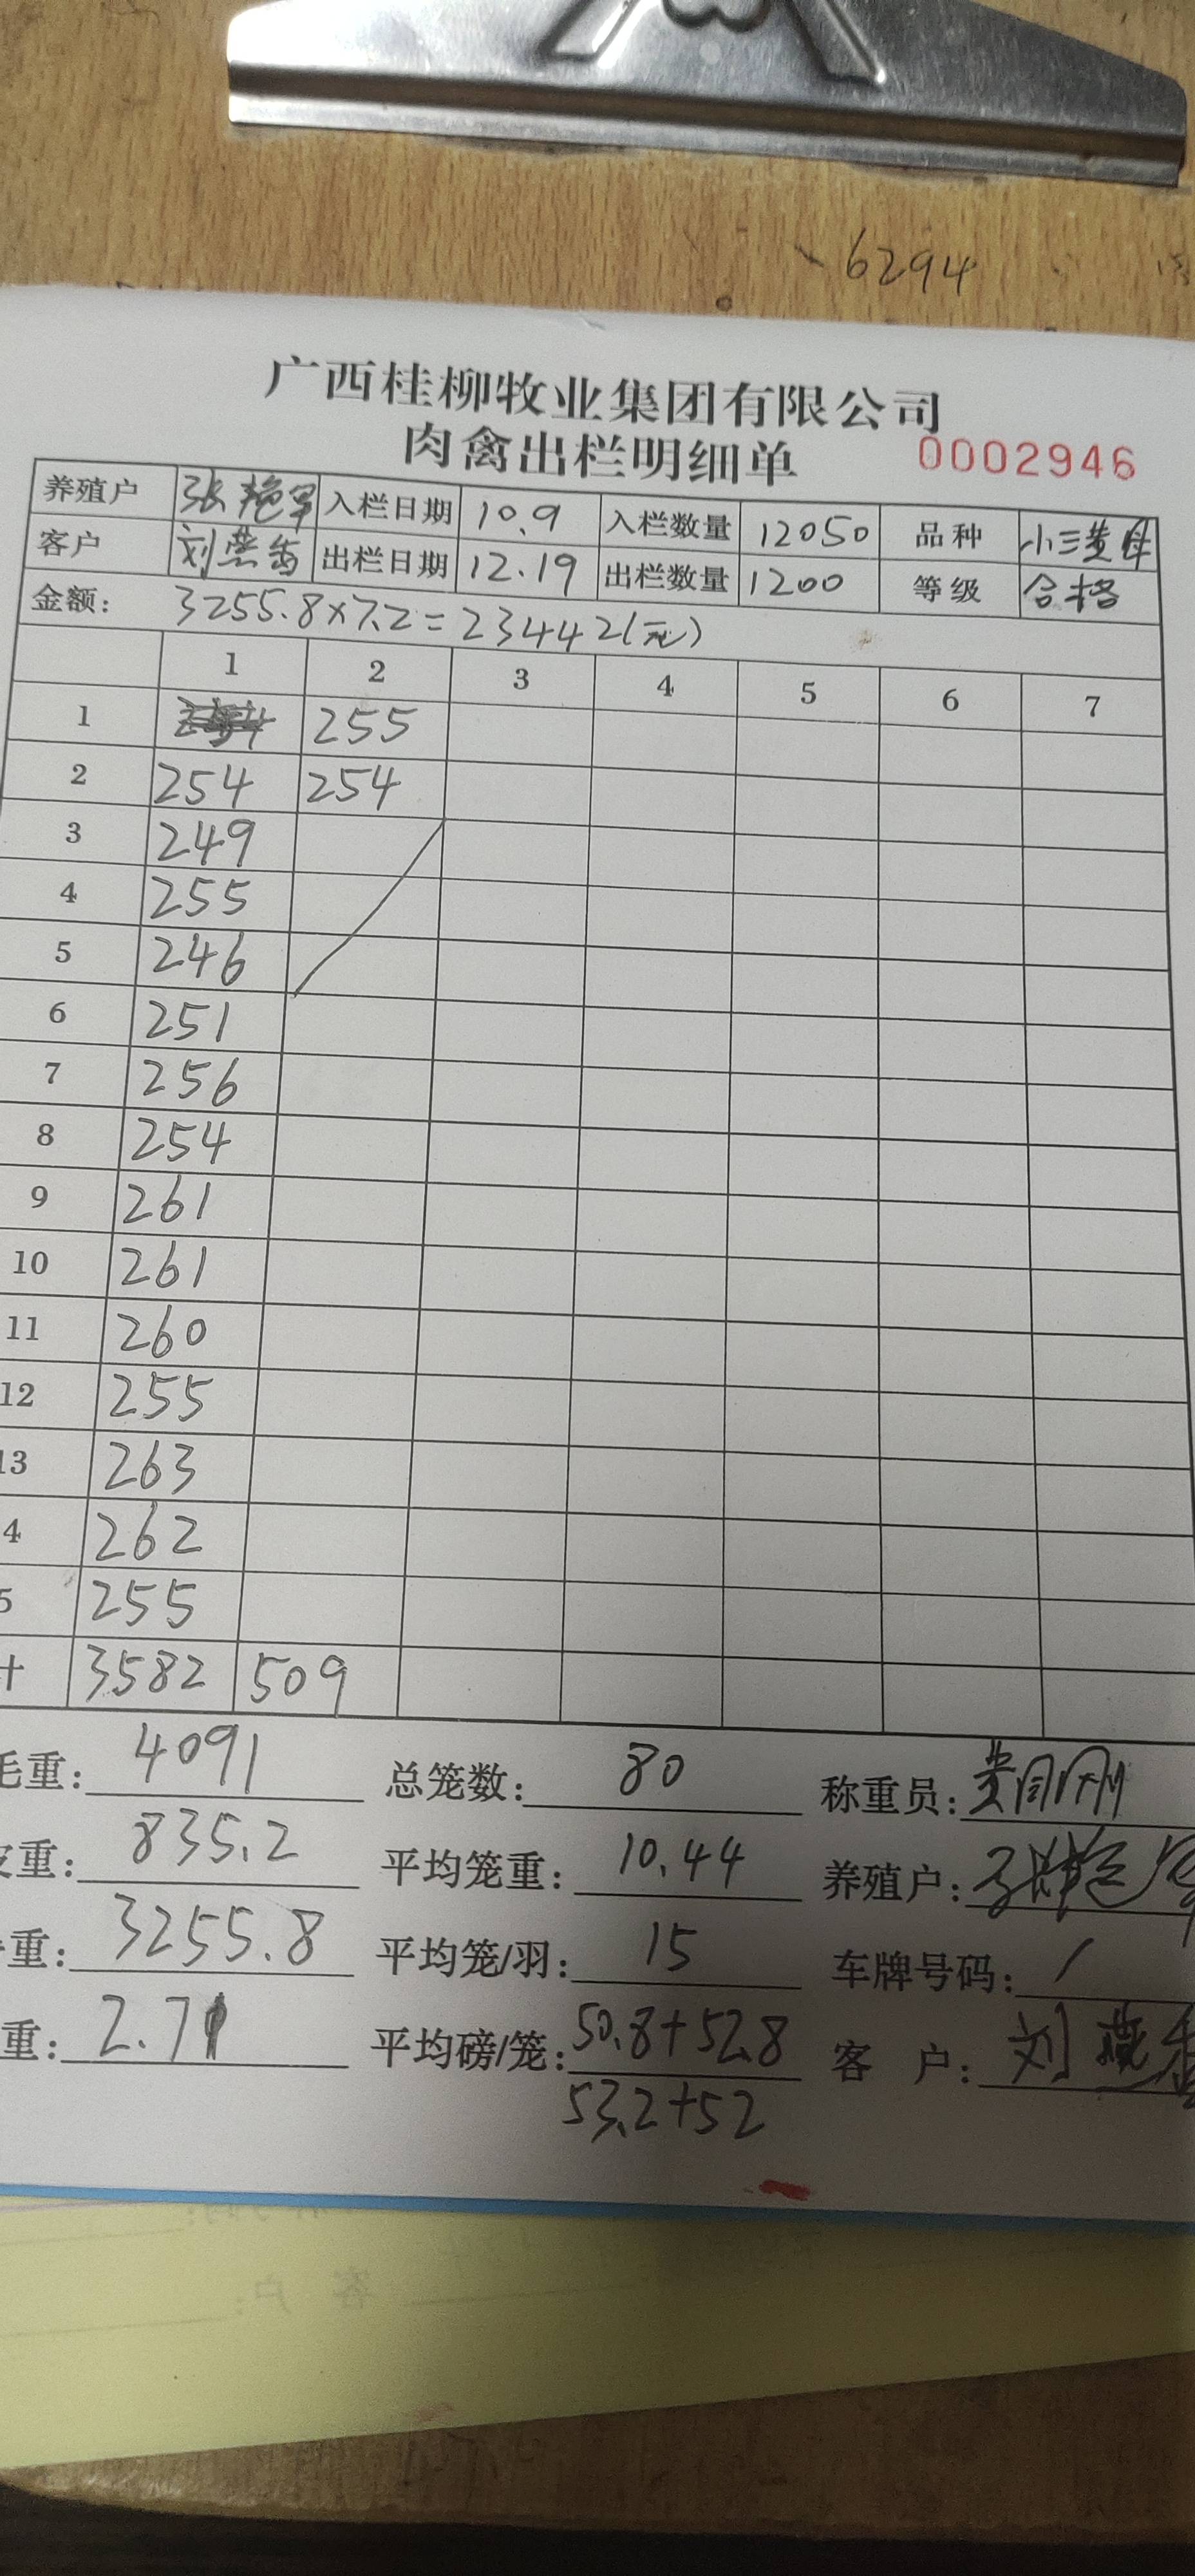 6294
广西桂柳牧业集团有限公司
肉禽出栏明细单 0002946
养殖户 张艳军 入栏日期 10.9 入栏数量 12050 品种 小三黄母
客户 刘燕香 出栏日期 12.19 出栏数量 1200 等级 合格
金额: 3255.8×7.2=23442(元)
1 2 3 4 5 6 7
1 255
2 254 254
3 249
4 255
5 246
6 251
7 256
8 254
9 261
10 261
11 260
12 255
13 263
4 262
5 255
十 3582 509
毛重: 4091 总笼数: 80 称重员:
皮重: 835.2 平均笼重: 10.44 养殖户:
重: 3255.8 平均笼/羽: 15 车牌号码: /
重: 2.71 平均磅/笼: 50.8+52.8 客 户: 刘燕香
53.2+52